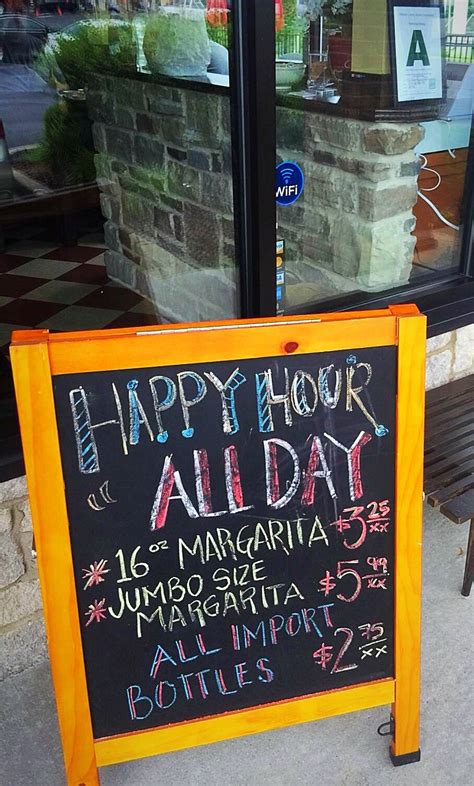 A
WiFi
HAPPY HOUR
ALL DAY
* 16 oz MARGARITA $3 25/xx
* JUMBO SIZE
MARGARITA $5 49/xx
ALL IMPORT
BOTTLES $2 75/xx